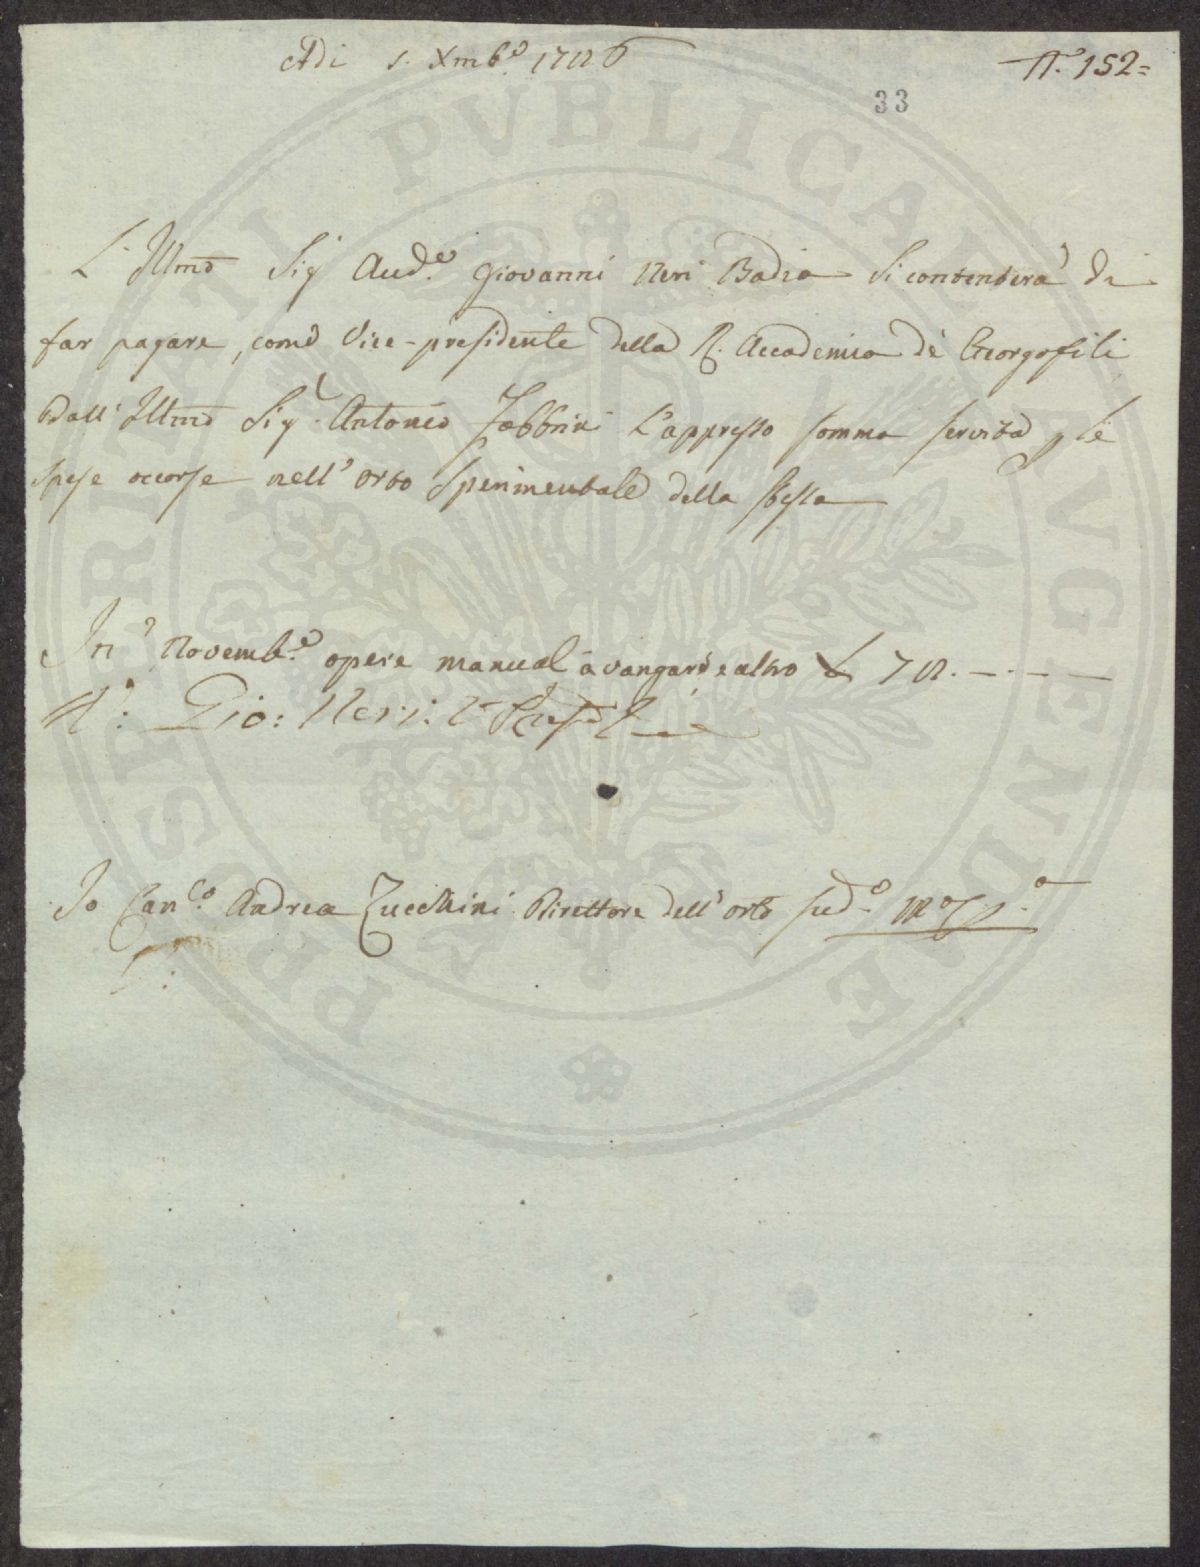 Adi 1. Xmb.e 1786
N.o 152=
33
L'Illmo Sig Aud.e Giovanni Neri Badia si contenterà di
far pagare, come Vice-presidente della R. Accademia dè Georgofili
Dall' Illmo Sig.r Antonio Fabbrini l'appresso somma servita p le
spese occorse nell' orto Sperimentale della stessa
In Novemb.e opere manuali a vangare e altro £ 78.----
Gio: Neri: V: Presid.e
Io Can.co Andrea Zucchini Direttore dell' orto sud.o
PROSPERITATI PVBLICAE AVGENDAE